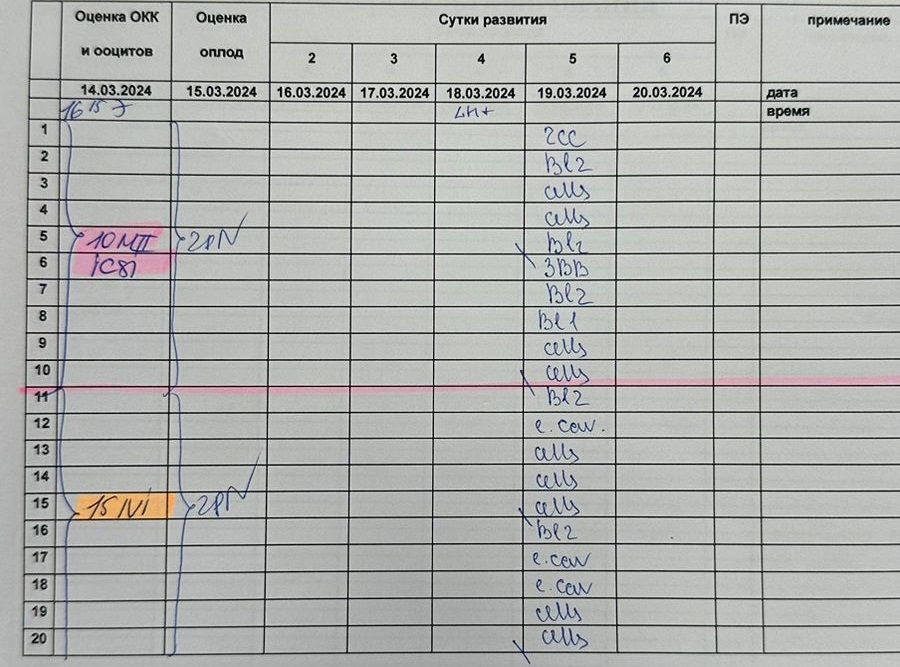 Оценка ОКК и ооцитов Оценка оплод Сутки развития ПЭ примечание
2 3 4 5 6
14.03.2024 15.03.2024 16.03.2024 17.03.2024 18.03.2024 19.03.2024 20.03.2024 дата
LH+ время
1 2CC
2 Bl2
3 cells
4 cells
5 10 MII 2PN Bl2
6 ICSI 3BB
7 Bl2
8 Bl1
9 cells
10 cells
11 Bl2
12 e.cav.
13 cells
14 cells
15 2PN cells
16 Bl2
17 e.cav
18 e.cav
19 cells
20 cells